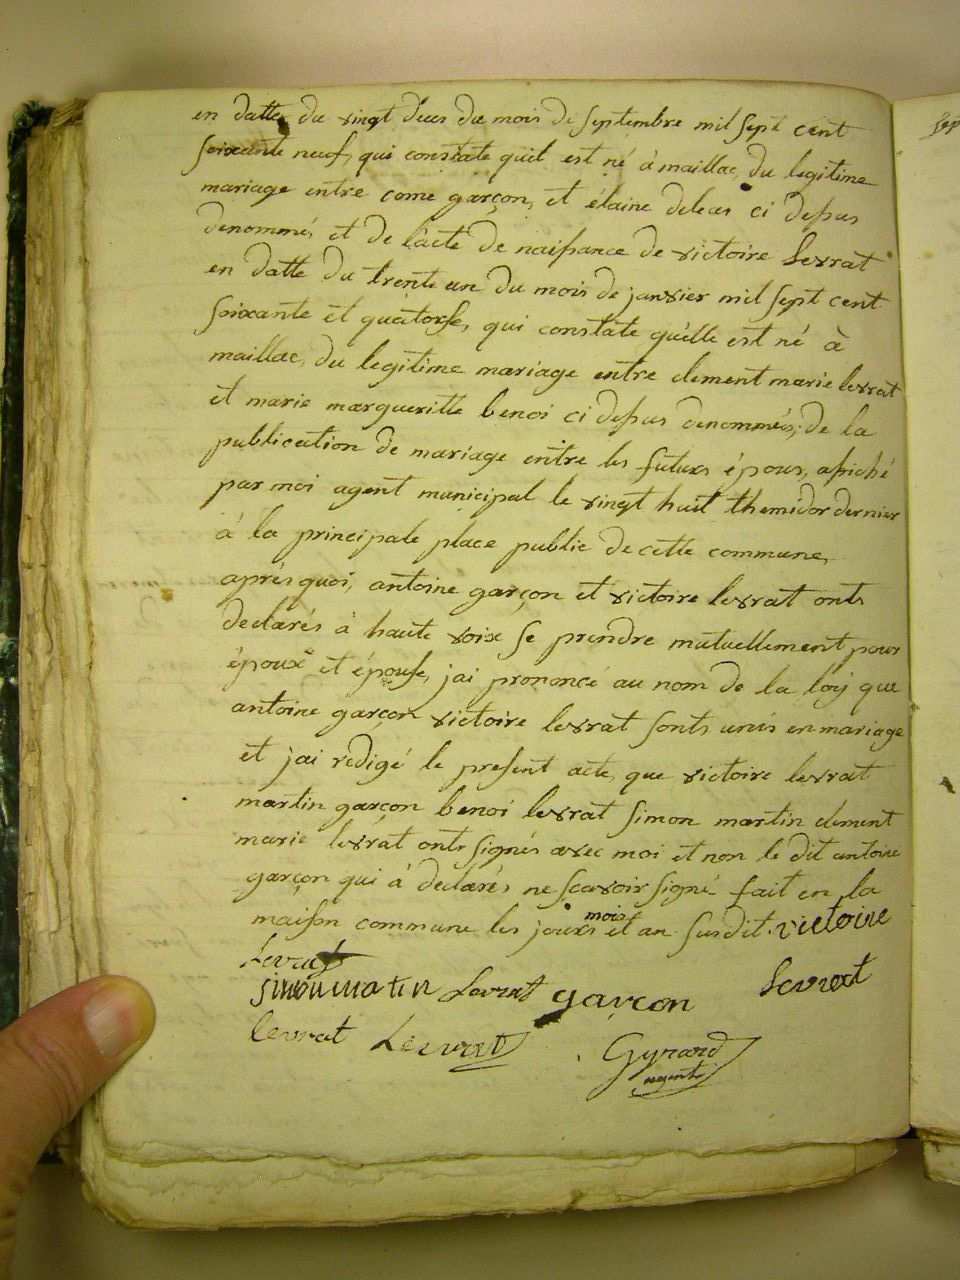 en datte du vingt deux du mois de septembre mil sept cent
soixante neuf, qui constate quil est né à maillac, du legitime
mariage entre come garçon, et élaine ci dessus
denommés et de l'acte de naissance de victoire Levrat
en datte du trente un du mois de janvier mil sept cent
soixante et quatorse, qui constate quélle est né à
maillac, du legitime mariage entre clement marie levrat
et marie margueritte benoi ci dessus denommés; de la
publication de mariage entre les futurs épous, afiché
par moi agent municipal le vingt huit themidor dernier
à la principale place public de cette commune,
aprés quoi, antoine garçon et victoire levrat onts
declarés à haute voix se prendre mutuellement pour
époux et épouse, jai prononcé au nom de la loy que
antoine garçon victoire levrat sonts unis en mariage
et jai redigé le present acte, que victoire levrat
martin garçon benoi levrat simon martin clement
marie levrat onts signés avec moi et non le dit antoine
garçon qui à declarés ne scavoir signé fait en la
maison commune les jours mois et an susdit. victoire
Levrat
simon matin Levrat garçon Levrat
levrat Levrat Gyrard
agent
sep